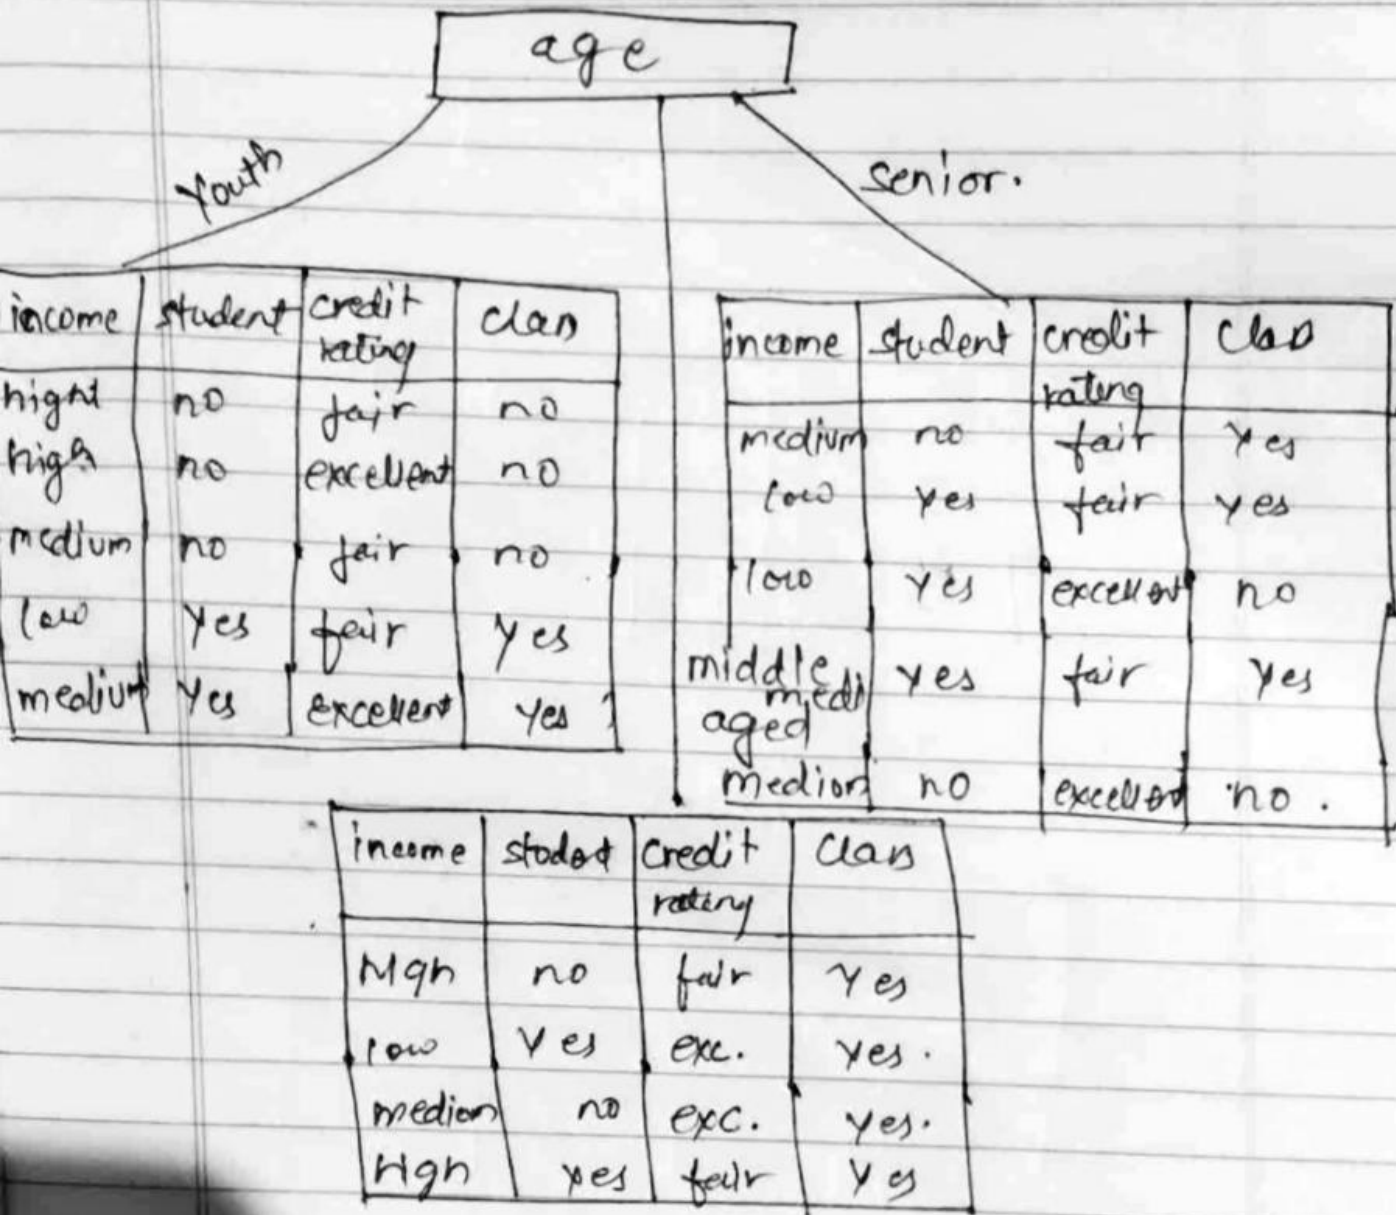 age
Youth
senior.
income student credit rating class
hight no fair no
high no excellent no
medium no fair no
low yes fair yes
medium yes excellent yes
income student credit rating class
medium no fair yes
low yes fair yes
low yes excellent no
medi yes fair yes
medium no excellent no.
middle
aged
income student credit rating class
High no fair yes
low yes exc. yes.
medium no exc. yes.
High yes fair yes